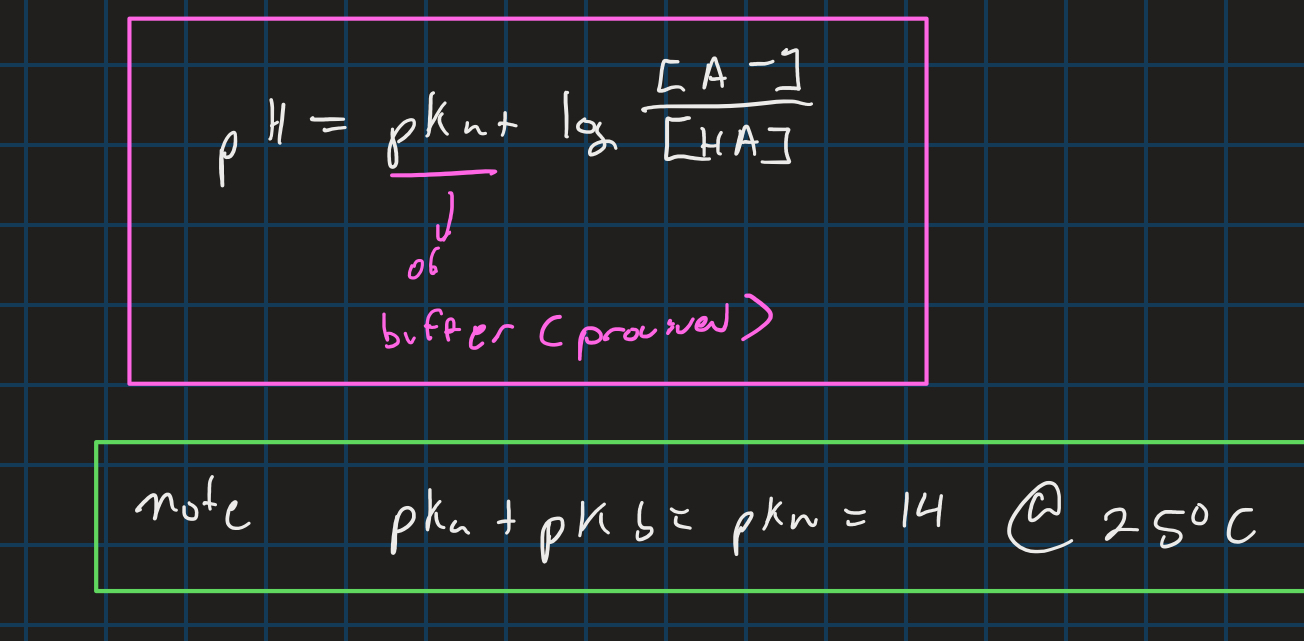 pH = pka + log [A-]/[HA]
of
buffer (provided)
note pka + pKb = pkw = 14 @ 25°C